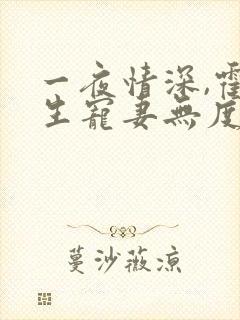 一夜情深,霍
生寵妻無度
蔓沙薇涼